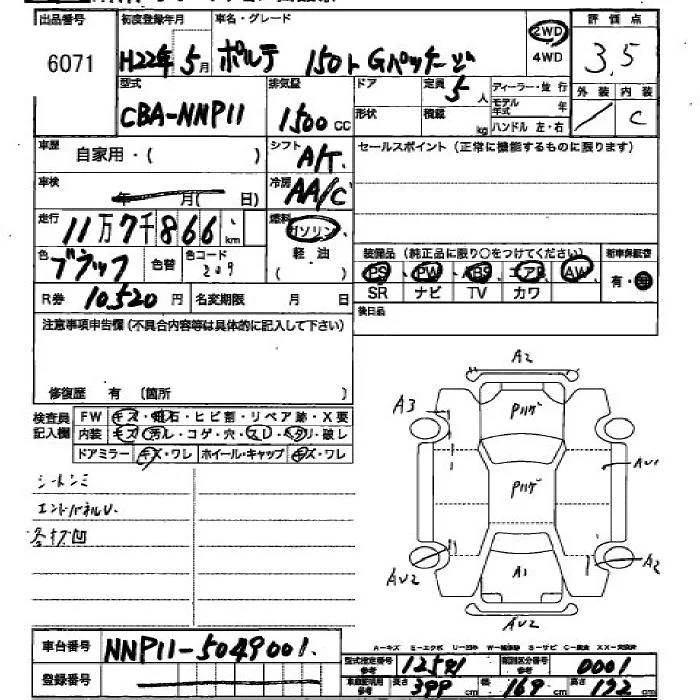 出品番号 初度登録年月 車名・グレード 評価点
6071 H22年5月 ポルテ 150r Gパッケージ 2WD 4WD 3,5
型式 排気量 ドア 定員 5人 ディーラー・並行 外装 内装
CBA-NNP11 1500cc 形状 積載 kg モデル年式 年 ハンドル 左・右 / C
車歴 自家用・( ) シフト A/T. セールスポイント(正常に機能するものに限ります)
車検 年 月( 日) 冷房 AA/C
走行 11万7千866km 燃料 ガソリン、
色 ブラック 色替 色コード 209 軽油 ・( ) 装備品(純正品に限り○をつけてください) 新車保証書
PS PW ABS エアB AW 有・無
R券 10,520円 名変期限 月 日 SR ナビ TV カワ
注意事項申告欄(不具合内容等は具体的に記入して下さい) 後日品
修復歴 有 (箇所 )
検査員記入欄 FW キズ・飛石・ヒビ割・リペア跡・X要
内装 キズ・汚ル・コゲ・穴・スレ・ヘタリ・破レ
ドアミラー キズ・ワレ ホイール・キャップ キズ・ワレ
シートシミ
エンドパネルU.
各打凹
A2
A3 Pハゲ
Pハゲ AU1
AU2 A1 A2
AU2
車台番号 NNP11-5049001.
登録番号
A-キズ E-エクボ U-凹み W-補修跡 S-サビ C-腐食 XX-交換済
型式指定番号 参考 12521 類別区分番号 参考 0001
車両説明用 参考 長さ 399cm 幅 169cm 高さ 172cm